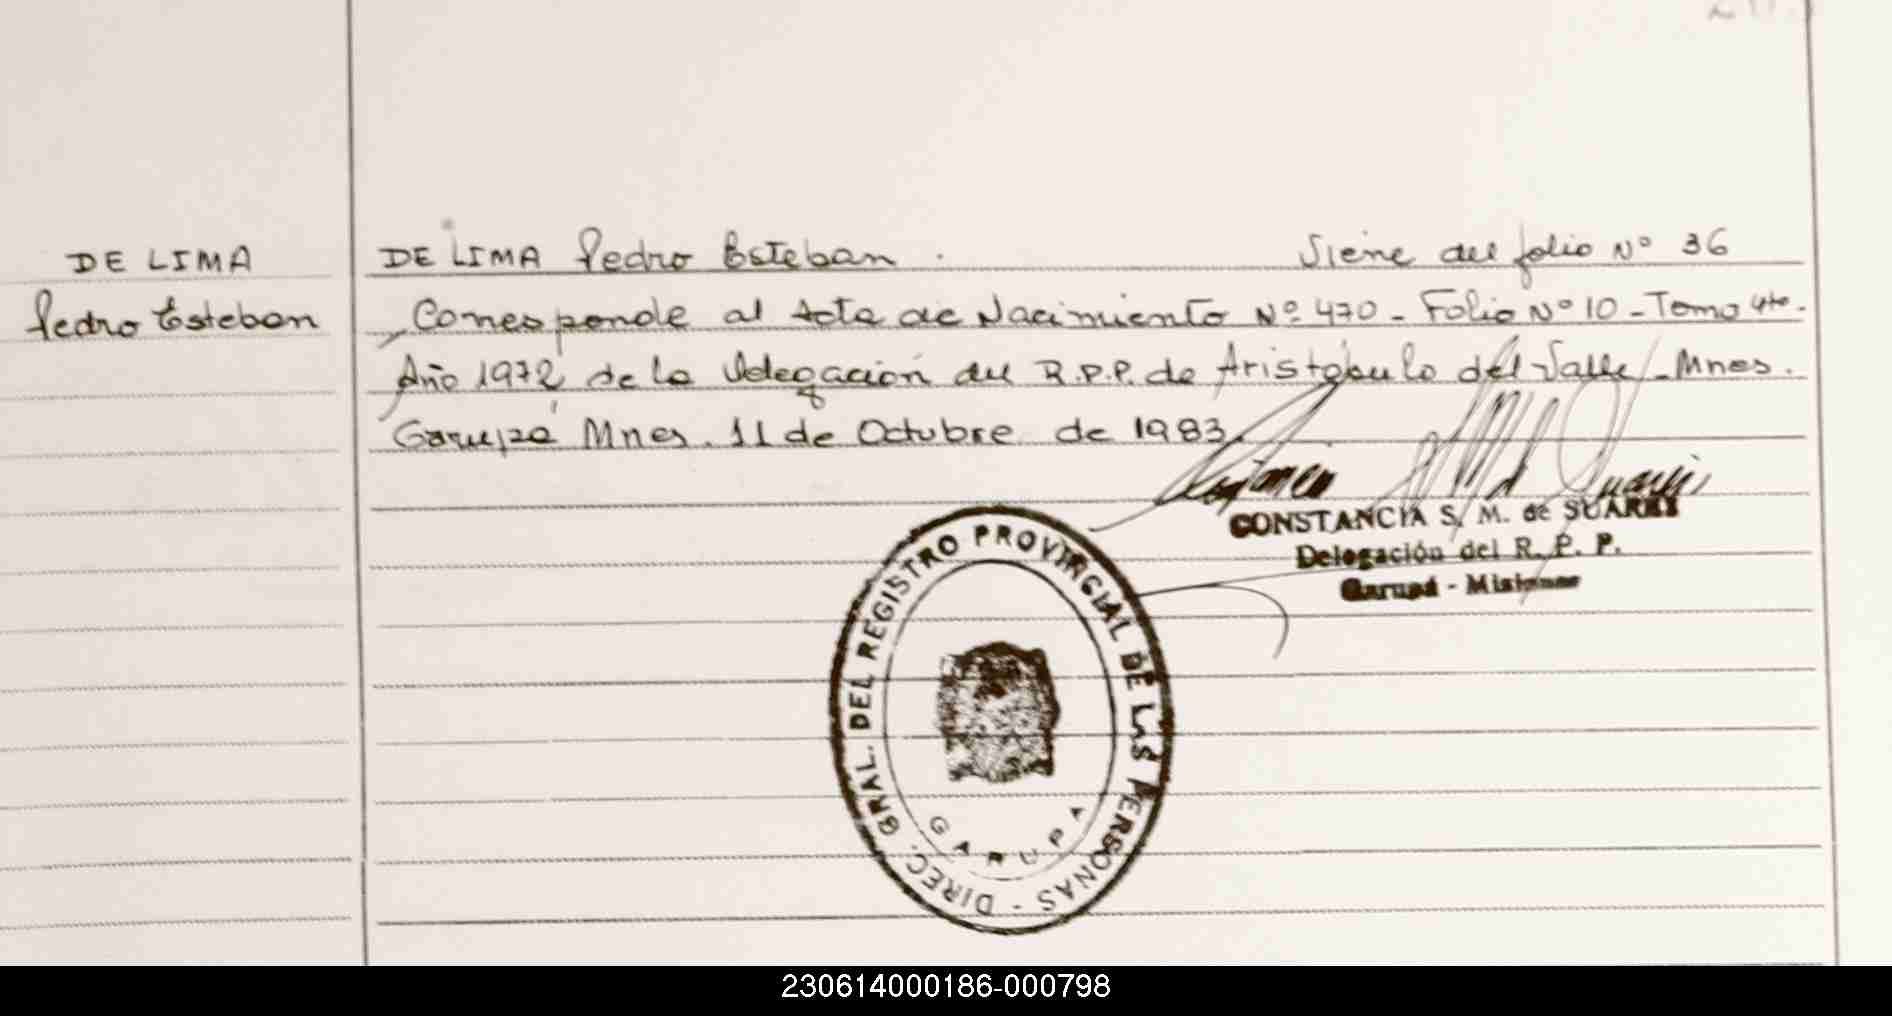 DE LIMA
Pedro Esteban
DE LIMA Pedro Esteban. Viene del folio Nº 36
Corresponde al Acta de Nacimiento Nº 470 - Folio Nº 10 - Tomo 4to.
Año 1972 de la Delegación del R.P.P. de Aristóbulo del Valle - Mnes.
Garupá Mnes. 11 de Octubre de 1983.
CONSTANCIA S. M. de SUAREZ
Delegación del R. P. P.
Garupá - Misiones
DIREC. GRAL. DEL REGISTRO PROVINCIAL DE LAS PERSONAS -
GARUPA
230614000186-000798